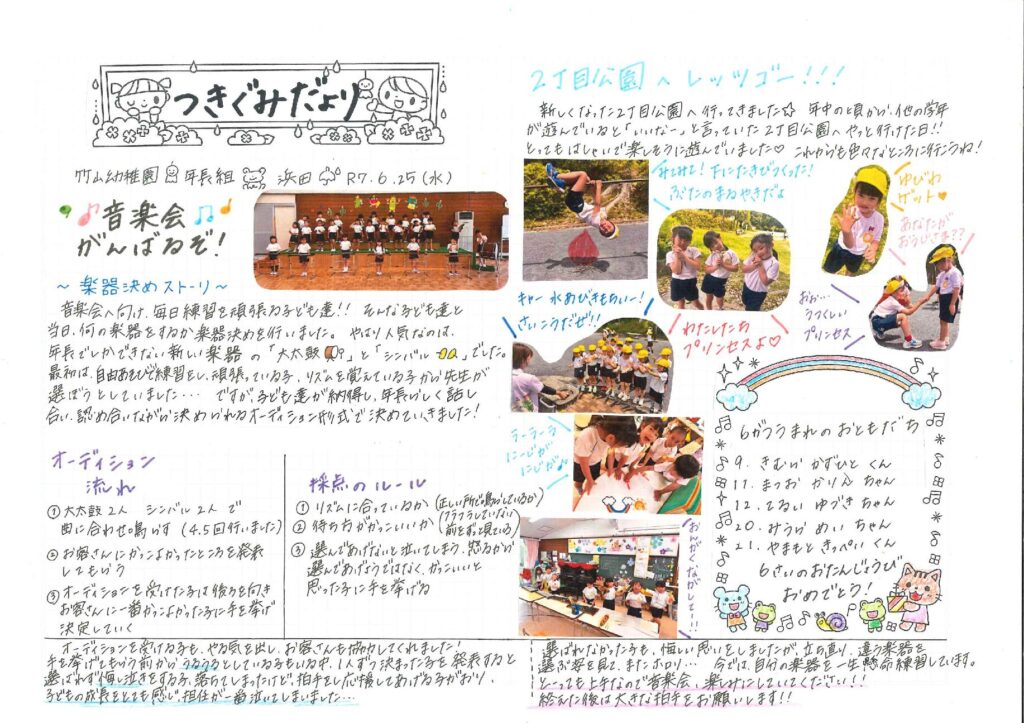 つきぐみだより
竹山幼稚園 年長組 浜田 R7.6.25(水)
音楽会
がんばるぞ!
～楽器決めストーリー～
音楽会へ向け、毎日練習を頑張る子ども達!! そんな子ども達と
当日、何の楽器をするか楽器決めを行いました。やはり人気なのは、
年長でしかできない新しい楽器の「大太鼓」と「シンバル」でした。
最初は、自由あそびで練習をし、頑張っている子、リズムを覚えている子から先生が
選ぼうとしていました… ですが、子ども達が納得し、年長らしく話し
合い、認め合いながら決められるオーディション形式で決めていきました!
オーディション
流れ
① 大太鼓2人 シンバル2人で
曲に合わせ鳴らす (4.5回行いました)
② お客さんにかっこよかったところを発表
してもらう
③ オーディションを受けた子は後ろを向き
お客さんに一番かっこよかった子に手を挙げ
決定していく
採点のルール
① リズムに合っているか(正しい所で鳴らしているか)
② 持ち方がかっこいいか(フラフラしていない 前をずっと見ている)
③ 選んであげないと泣いてしまう、怒るから
選んであげようではなく、かっこいいと
思った子に手を挙げる
オーディションを受ける子も、やる気を出し、お客さんも協力してくれました!
手を挙げてもらう前からうるうるとしている子もいる中、1人ずつ決まった子を発表すると
選ばれず悔し泣きをする子、落ちてしまったけど、拍手をし応援してあげる子がおり、
子どもの成長をとても感じ、担任が一番泣いてしまいました…
2丁目公園へレッツゴー!!!
新しくなった2丁目公園へ行ってきました☆ 年中の頃から、他の学年
が遊んでいると「いいな～」と言っていた2丁目公園へやっと行けた日!!
とってもはしゃいで楽しそうに遊んでいました♡ これからも色々なところに行こうね!
みてみて!下にたきびつくった!
ぶたのまるやきだよ
ゆびわ
ゲット♥
あなたが
おうじさま??
キャー水あびきもちいー!
さいこうだぜ!!
わたしたち
プリンセスよ♡
おお…
うつくしい
プリンセス
ラーラーラ
にーじが
にじが♪
おんがくながしてー!!
6がつうまれのおともだち
9. きむら かずひと くん
11. まつお かりん ちゃん
12. てるい ゆづき ちゃん
20. みうら めい ちゃん
21. やまもと きっぺい くん
6さいのおたんじょうび
おめでとう!
選ばれなかった子も、悔しい思いをしましたが、立ち直り、違う楽器を
選ぶ姿を見て、またホロリ… 今では、自分の楽器を一生懸命練習しています。
と～っても上手なので音楽会、楽しみにしていてください!!
終えた後は大きな拍手をお願いします!!